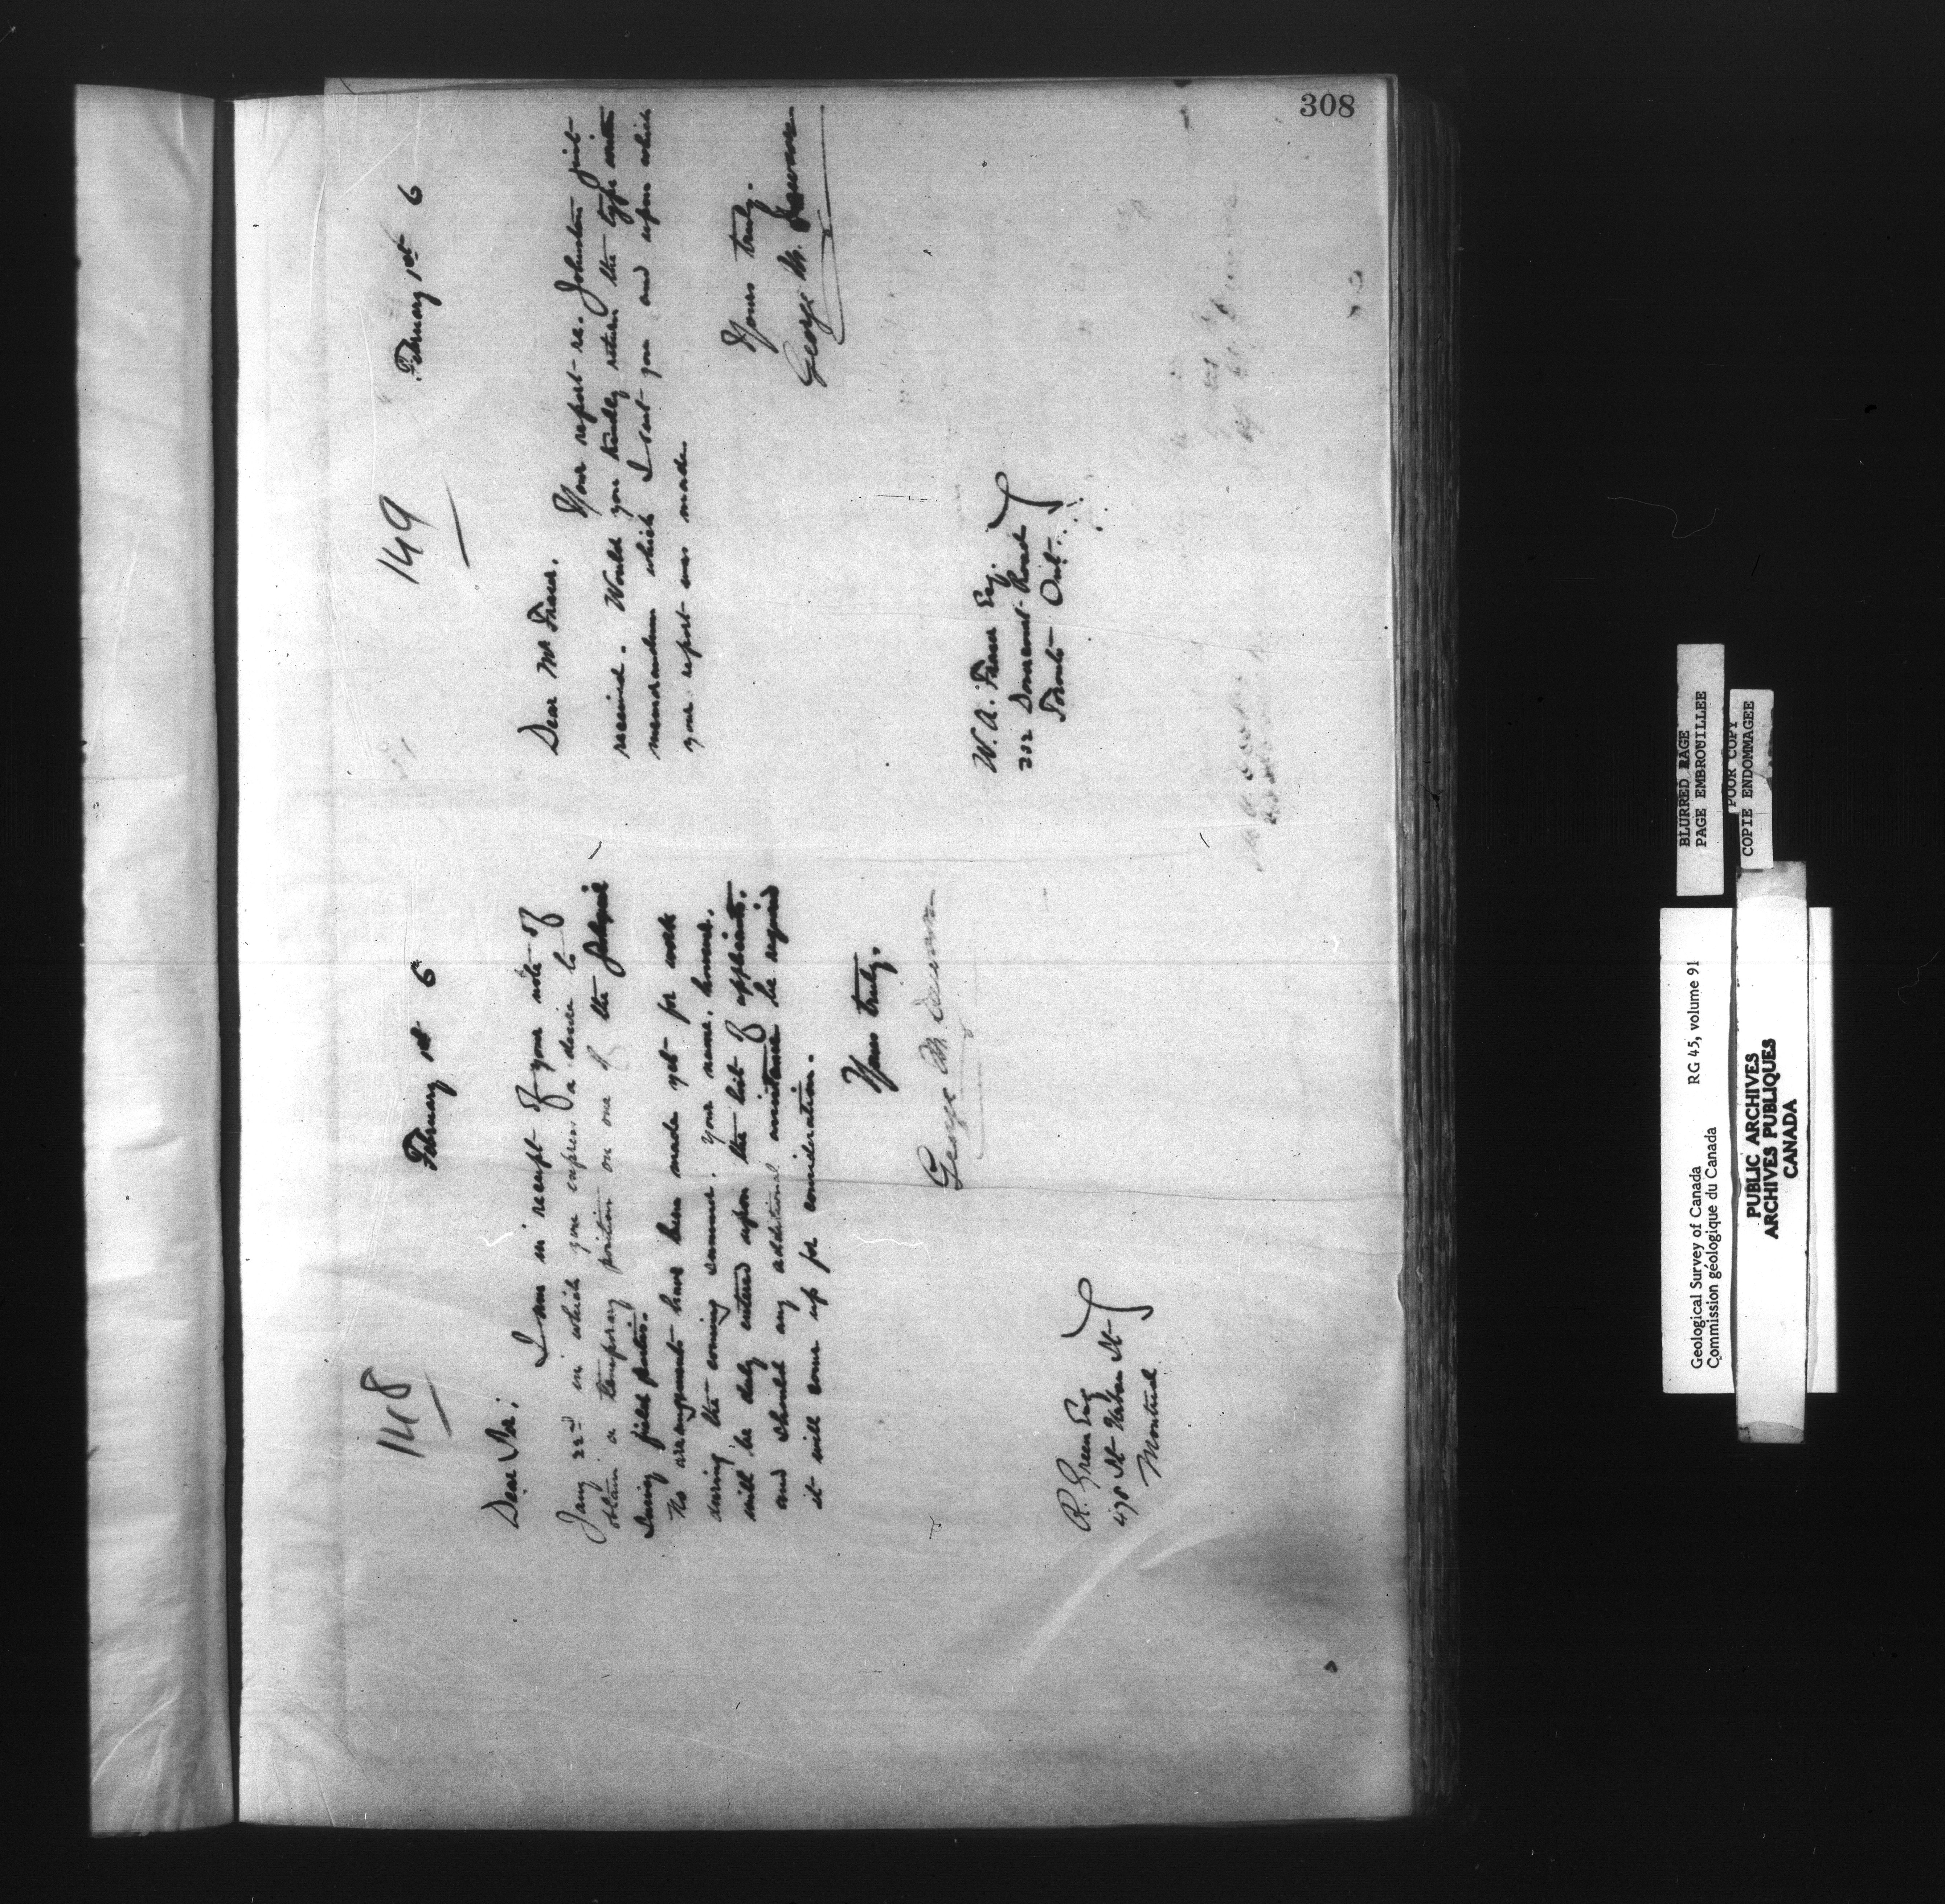 308
148
February 1st 6
Dear Sir;
I am in receipt of your note of
Jany 22nd in which you express a desire to
obtain a temporary position on one of the
Survey field parties.
No arrangements have been made yet for work
during the coming summer. Your name, however,
will be duly entered upon the list of applicants,
and should any additional assistance be required
it will come up for consideration.
Yours truly,
George M. Dawson
R. Green Esq
478 St Urbain St
Montreal
149
February 1st 6
Dear Mr Fraser,
Your report re. Johnston just
received. Would you kindly return the type written
memorandum which I sent you and upon which
your report was made
Yours truly,
George M. Dawson
W. A. Fraser Esq.
Road
Toronto Ont.
BLURRED PAGE
PAGE EMBROUILLEE
POOR COPY
COPIE ENDOMMAGEE
Geological Survey of Canada RG 45, volume 91
Commission géologique du Canada
PUBLIC ARCHIVES
ARCHIVES PUBLIQUES
CANADA